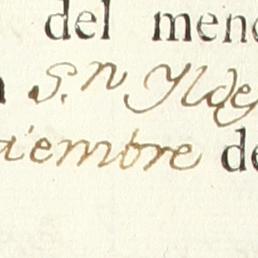 del men
S.n Ylde
iembre de